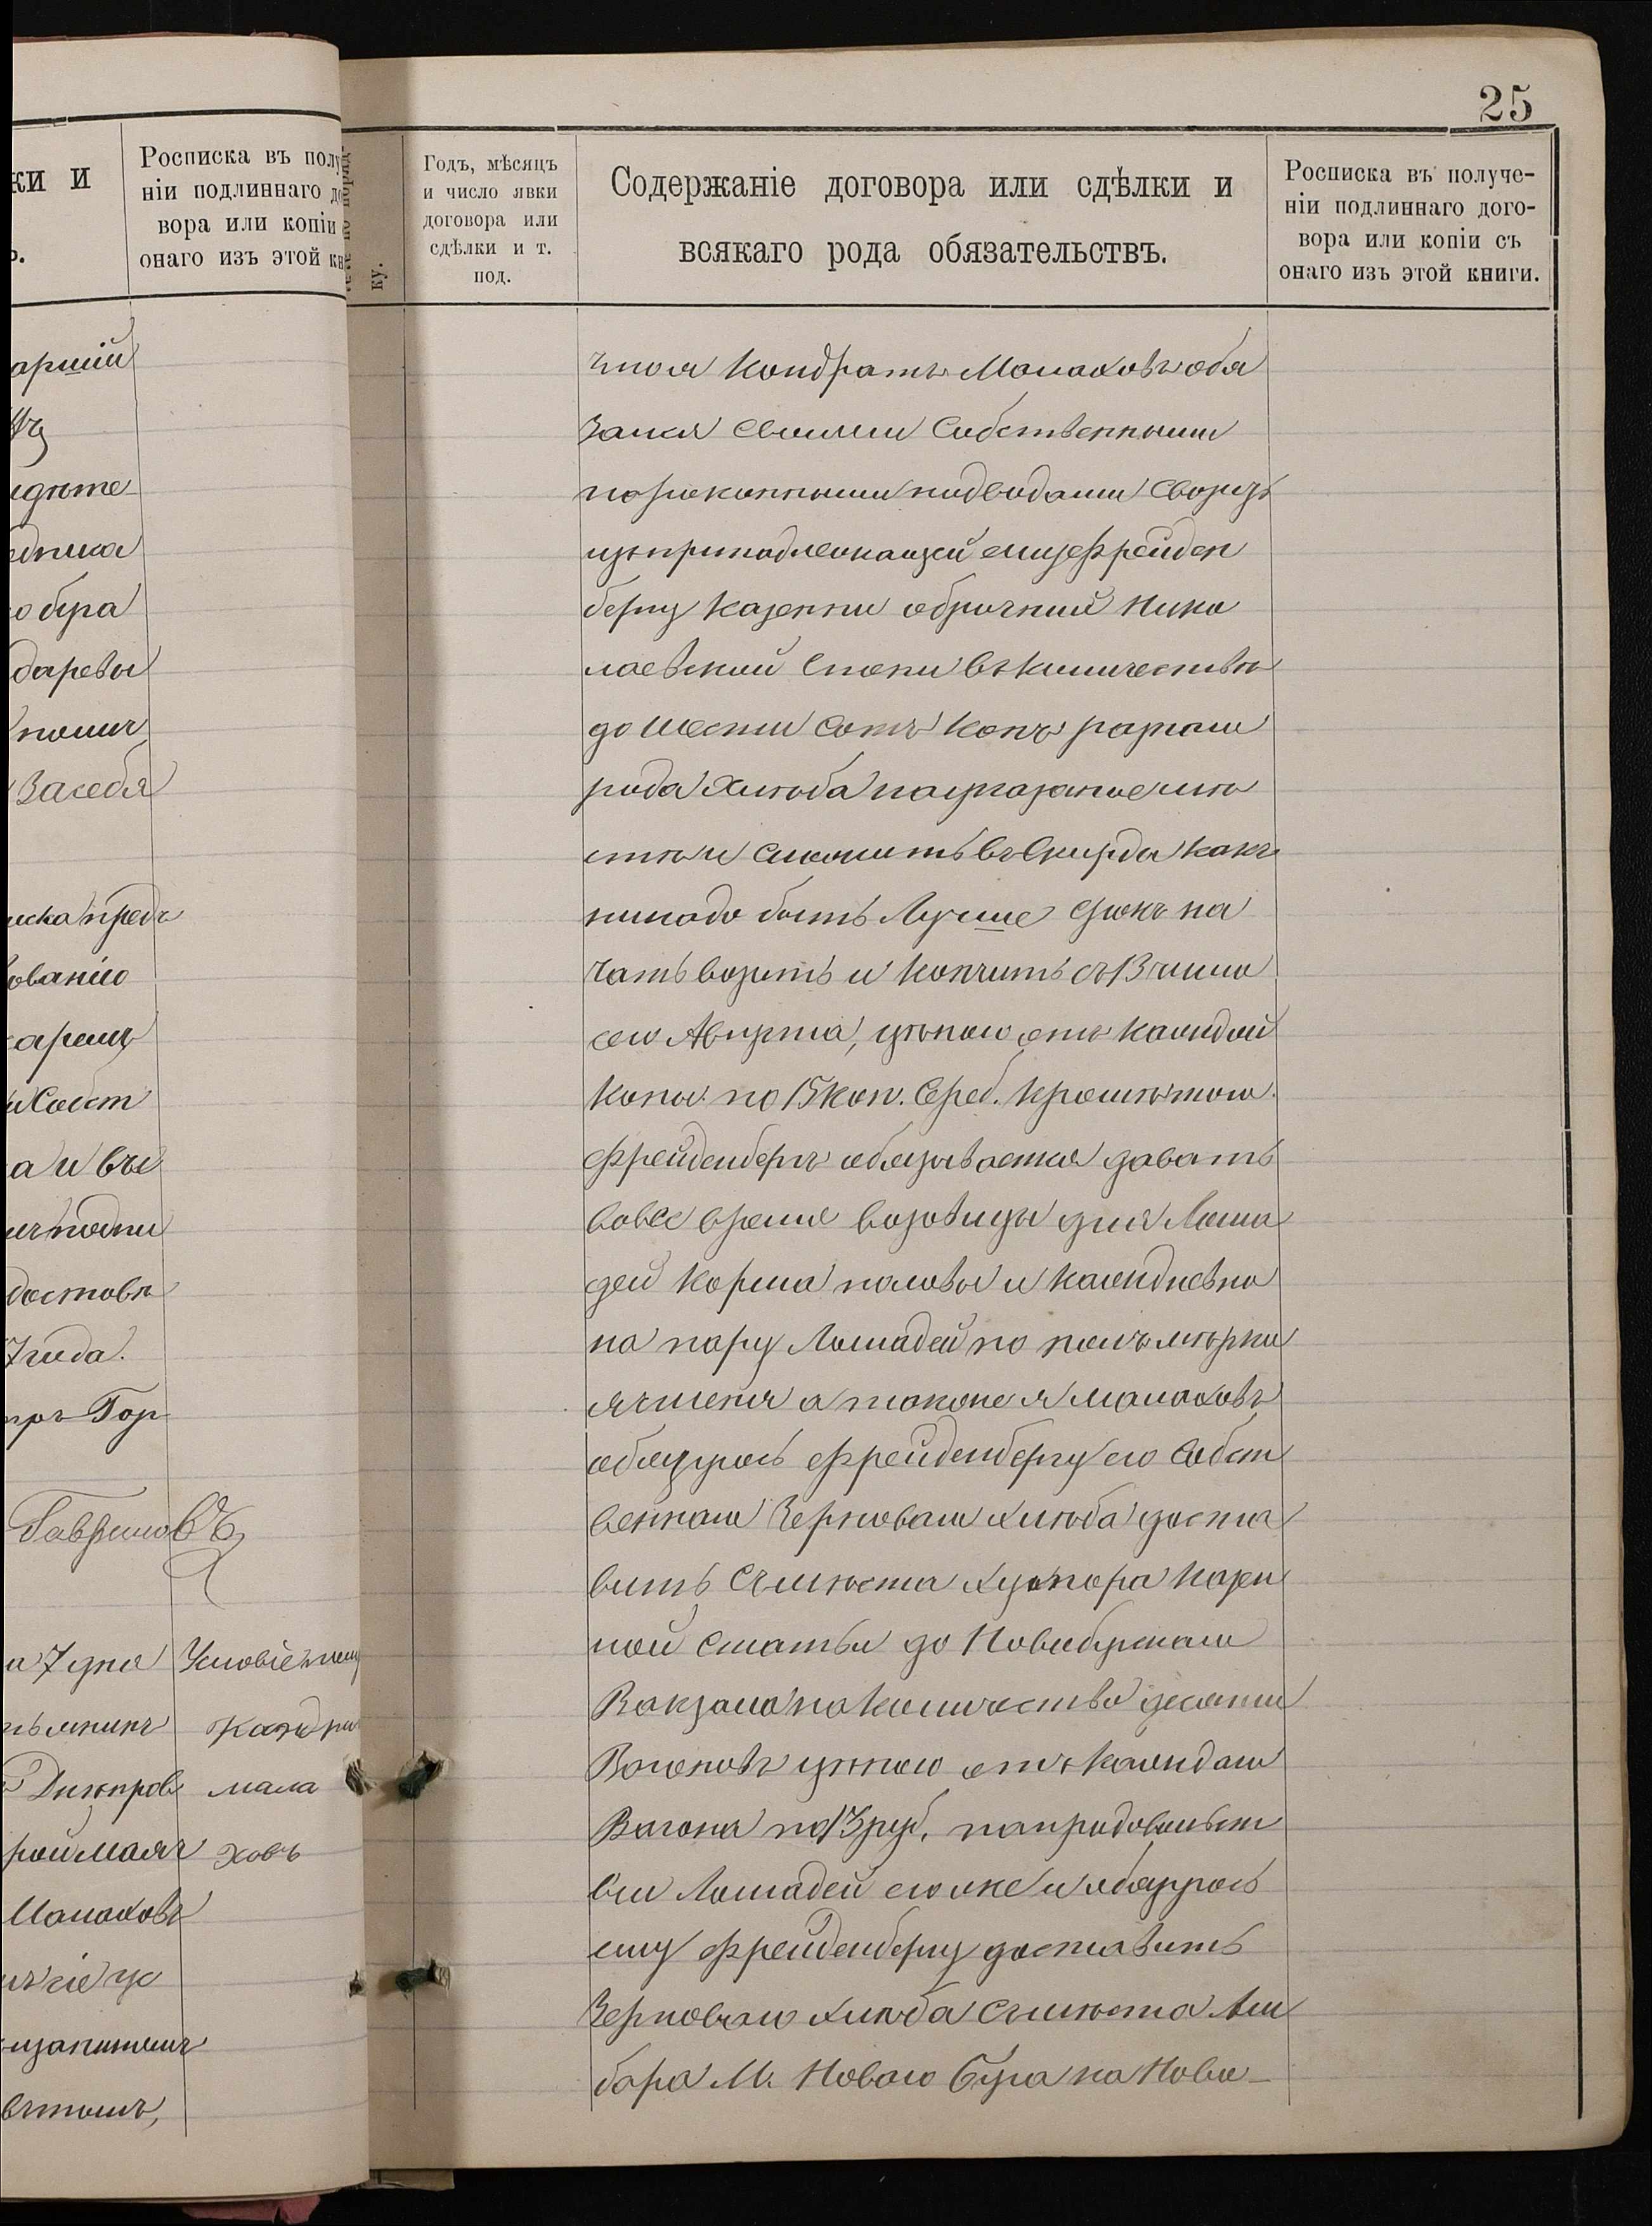 25
ки и
Росписка въ полу
ніи подлиннаго до
вора или копіи
онаго изъ этой кн
ку.
Годъ, мѣсяцъ
и число явки
договора или
сдѣлки и т.
под.
Содержаніе договора или сдѣлки и
всякаго рода обязательствъ.
Росписка въ получе-
ніи подлиннаго дого-
вора или копіи съ
онаго изъ этой книги.
аршій
идѣте
дника
обра
даревы
Засебя
иска предъ
ованію
и Собст
а и въ
доставк
7 года.
Гавриловъ
а 7 дня
Днѣпров
Малаховъ
Условіе
Кандра
мала
ховъ
что я Кондратъ Малаховъ обя
зался своими Собственными
пароконными подводами свозить
изъ принадлежащей ему Фрейден
бергу казенни оброчний Нико
лаевский Степи въ количествѣ
до шести сотъ копъ разнаго
рода хлѣба на указаное мѣ
сто и сложить въ Скирды какъ
ни надо быть Лучше срокъ на
чать возить и кончить съ 13 числа
сего Августа, цѣною отъ каждой
копы по 15 коп. Сереб. кромѣ того
Фрейденбергъ обязывается давать
вовсе время возовицы для Лоша
дей корма половы и каждневно
на пару Лошадей по полъ мѣрки
ячменя а также я Малаховъ
обязуюсь Фрейденбергу его Собст
веннаго Зерноваго хлѣба доста
вить съ мѣста хутора казен
ной Статьи до Новобугскаго
Вокзала на количество десяти
Вагоновъ цѣною отъ каждаго
Вагона по 13 руб. на продовольст
вии Лошадей его же и обязуюсь
ему Фрейденбергу доставить
Зерноваго хлѣба съ мѣста Ам
бара М. Новаго Буга на Ново-